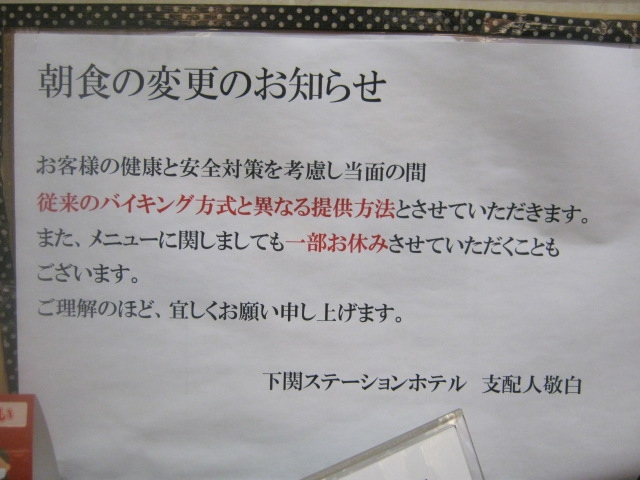 朝食の変更のお知らせ
お客様の健康と安全対策を考慮し当面の間
従来のバイキング方式と異なる提供方法とさせていただきます。
また、メニューに関しましても一部お休みさせていただくことも
ございます。
ご理解のほど、宜しくお願い申し上げます。
下関ステーションホテル 支配人敬白